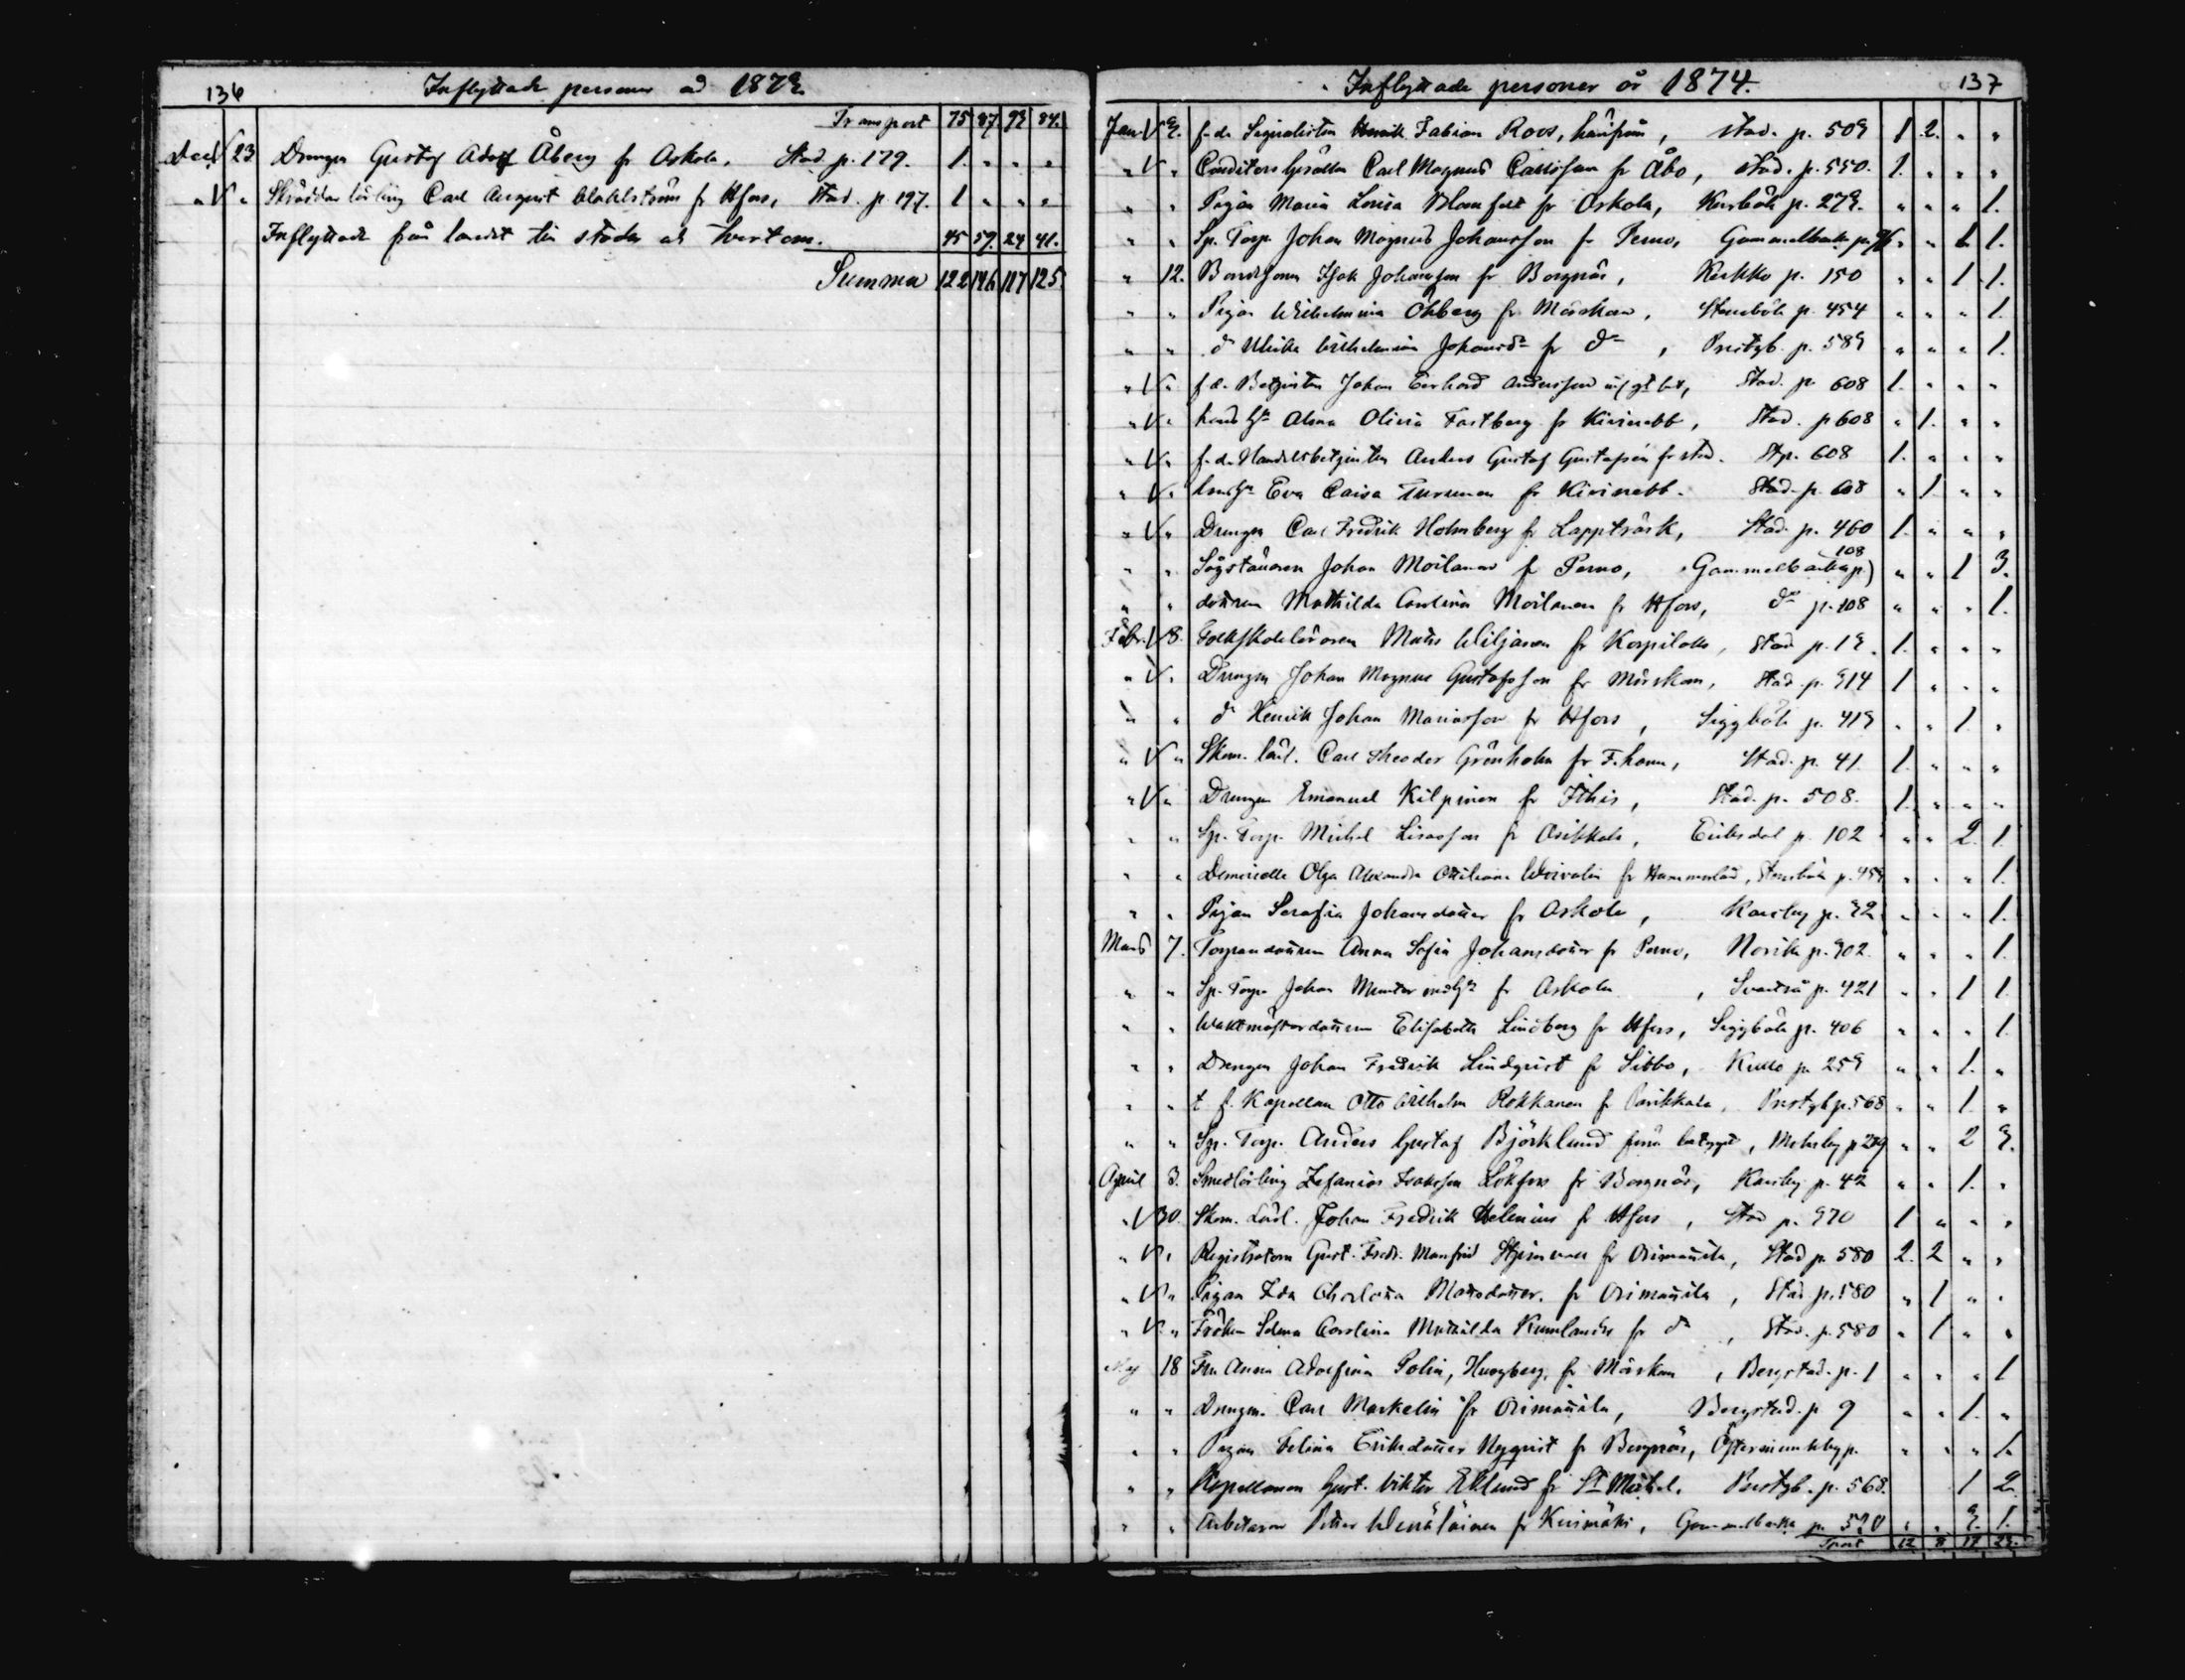 136 Inflyttade personer åd 1873.
Transport 75 87. 93 84.
Decb 23 Drengen Gustaf Adolf Åberg fr Askola. Stad p. 179. 1. " " "
" V " Skräddar lärling Carl August Wahlström fr Hfors, Stad. p 197. 1 " " "
Inflyttade från landet till staden och tvertom. 45 59. 24 41.
Summa 122 146 117 125.
Inflyttade personer år 1874. 137
Jan V 3. f. d. Signalisten Henrik Fabian Roos, härifrån, stad. p. 503 1 2. " "
" V " Conditors Gesällen Carl Magnus Carlsson fr Åbo, stad. p. 550. 1. " " "
" " Pigan Maria Lovisa Blomfelt fr Askola, p. 273. " " " 1.
" " Sp. Torp. Johan Magnus Johansson fr Perno, Gammelbacka p. " " 1. 1.
" 12. Bondesonen Isak Johansson fr Borgnäs, Kerkko p. 150 " " 1 1.
" " Pigan Wilhelmina Öhberg fr Mörskom, Stensböle p. 454 " " " 1.
" " do Ulrika Wilhelmina Johansdr fr do, Prestgb. p. 583 " " " 1.
" V " f. d. Betjenten Johan Gerhard Andersson Stad. p. 608 1. " " "
" V " hans hu Alma Olivia Fastberg fr Kivinebb, Stad. p 608 " 1. " "
" V " f. d. Handelsbetjenten Anders Gustaf fr stad. St p. 608 1. " " "
" V " Eva Caisa Turunen fr Kivinebb. Stad. p. 608 " 1 " "
" V " Drengen Carl Fredrik Holmberg fr Lappträsk, Stad p. 460 1. " " "
" " Johan Moilanen fr Perno, Gammelbacka p) 108 " " 1 3.
" " dottren Mathilda Carolina Moilanen fr Hfors, do p. 108 " " " 1.
Febr. V 8. Folkskoleläraren Mats Wiljanen fr Korpilaks, Stad p. 13. 1. " " "
" V " Drengen Johan Magnus Gustafsson fr Mörskom, Stad. p. 314 1 " " "
" " do Henrik Johan Mariasson fr Hfors, Siggböle p. 413 " " 1 "
" V " Skom. lärl. Carl Theodor Grönholm fr F.hamn, Stad. p. 41. 1. " " "
" V " Drengen Emanuel Kilpinen fr Ithis, Stad. p. 508. 1. " " "
" " Sp. Torp. Michel Lisasson fr Asikkala, Eriksdal p. 102 " " 2. 1.
" " Demoiselle Olga Alexandra Ottiliana fr Hammarland, Stensböle p. " " " 1.
" " Pigan Serafia Johansdotter fr Askola, Karsby p. 32 " " " 1.
Mars 7. Torparedottren Anna Sofia Johansdotter fr Perno, Norike p. 302. " " " 1.
" " Sp. Torp. Johan Munter med hu fr Askola, Svartså p. 421 " " 1 1
" " Waktmästardottren Elisabeth Lindberg fr Hfors, Siggböle p. 406 " " " 1.
" " Drengen Johan Fredrik Lindqvist fr Sibbo, Kullo p. 253 " " 1. "
" " t. f. Kapellan Otto Wilhelm Rokkanen fr Parikkala, Prestgb p. 568 " " 1. "
" " Sp. Torp. Anders Gustaf Björklund från betyget, p 289 " " 2 3.
April 3. Smedlärling Zefanias Isaksson Löfhors fr Borgnäs, Karsby p. 42 " " 1. "
" V 30. Skom. Lärl. Johan Fredrik Helenius fr Hfors, Stad p. 370 1 " " "
" V " Registratorn Gust. Fredr. Manfrid fr Orimattila, Stad p. 580 2. 2 " "
" V " Pigan Ida Charlotta Matsdotter. fr Orimattila, Stad p. 580 " 1 " "
" V " Fröken Selma Carolina Mathilda Kumlander fr do, Stad. p. 580 " 1 " "
Maj 18 Fru Anna Adolfina Polin, Huogberg, fr Mörskom, Borgstad. p. 1 " " " 1
" " Drengen Carl Markelin fr Orimattila, Borgstad. p 9 " " 1. "
" " Pigan Felina Eriksdotter Nyqvist fr Borgnäs, Östermunkby p. " " " 1.
" " Kapellanen Gust. Viktor Eklund fr St Michel, Prestgb. p. 568. 1 2.
" " Arbetaren Petter Wenäläinen fr Kivimäki, Gammelbacka p. 570 " " 3. 1.
Trant 12. 8. 17 23.